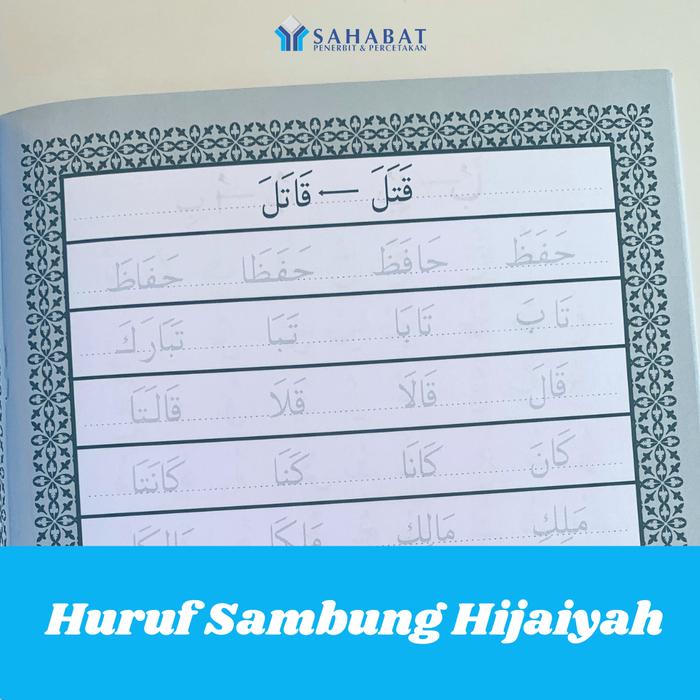 SAHABAT
PENERBIT & PERCETAKAN
قَتَلَ ← قَاتَلَ
حَفَظَ حَافَظَ حَفَظَا حَفَاظَ
تَا بَ تَابَا تَبَا تَبَارَكَ
قَالَ قَالَا قَلَا قَالَتَا
كَانَ كَانَا كَنَا كَانَتَا
مَلِكِ مَالِكِ
Huruf Sambung Hijaiyah